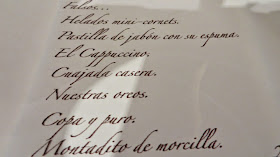 Falsos...
Helados mini-cornets.
Pastilla de jabón con su espuma.
El Cappuccino.
Cuajada casera.
Nuestras oreos.
Copa y puro.
Montadito de morcilla.